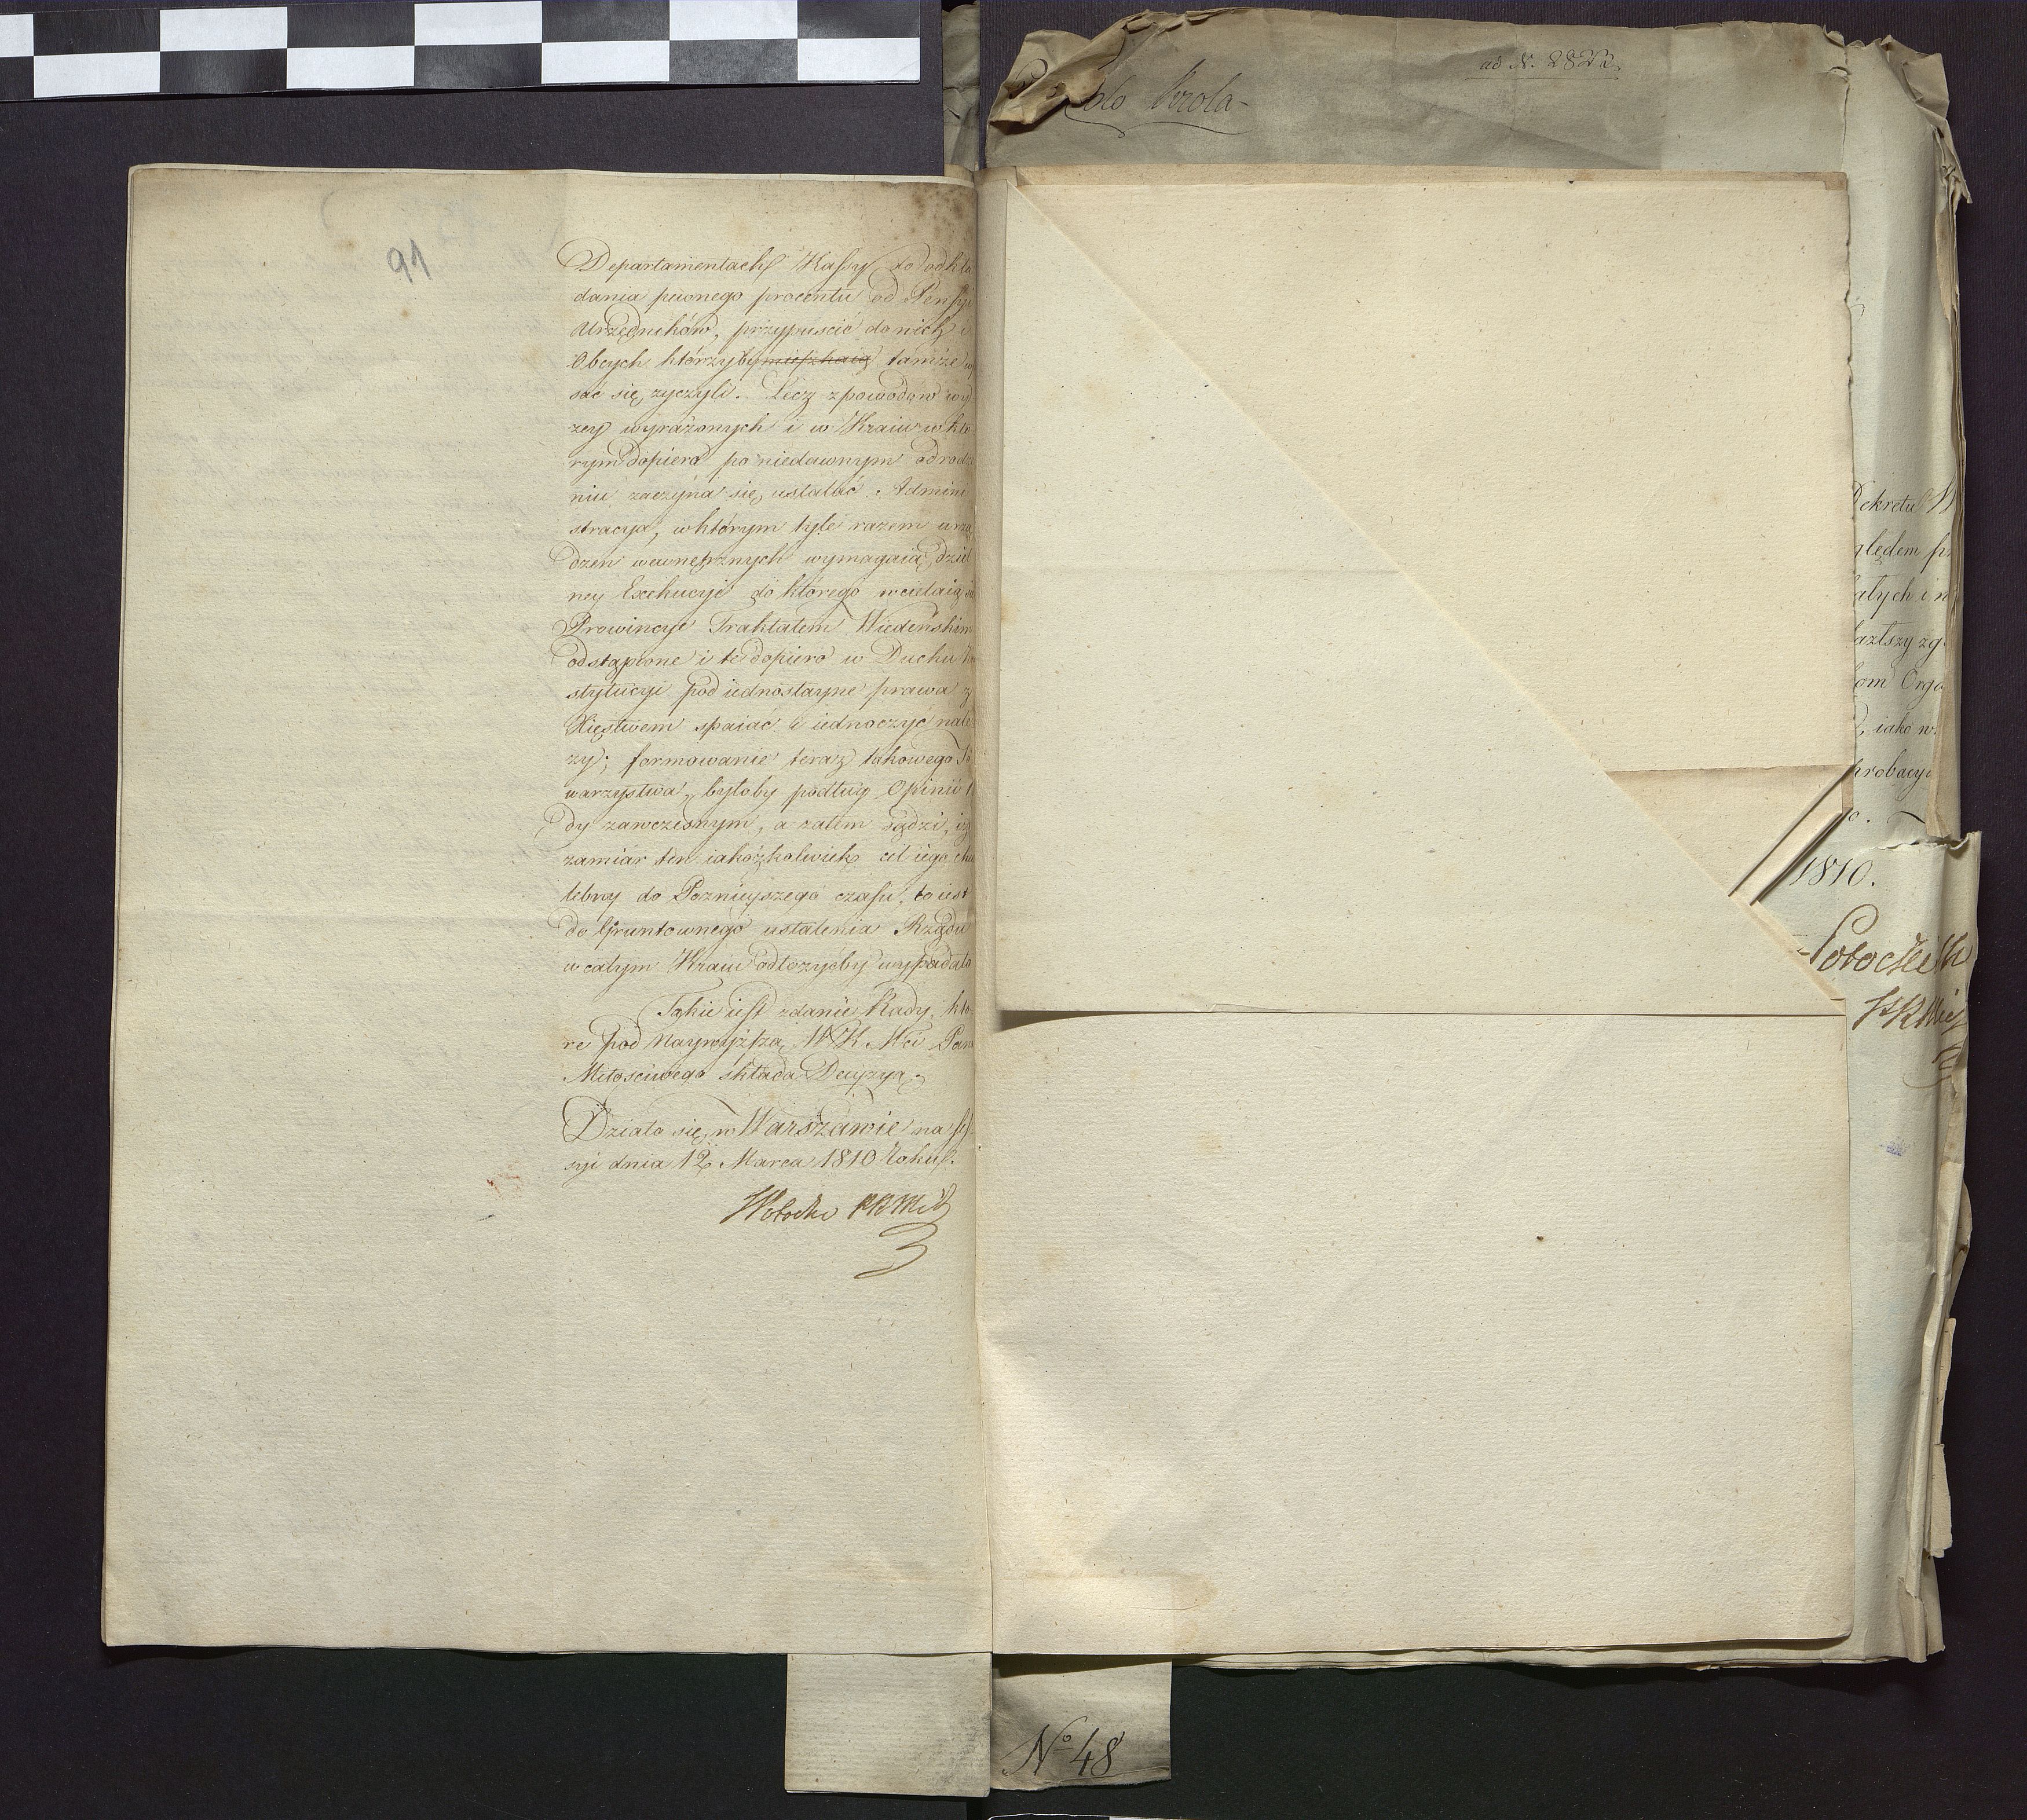 91
Departamentach Kassy do odkła
dania pewnego procentu od Pensyi
Urzędników, przypuscić do nich i
Obcych którzyby mieszkaią tamże
sać się życzyli. Lecz z powodów wy
zey wyrażonych i w Kraiu w któ
rym dopiero po niedawnym odrodze
niu zaczyna się ustalać Admini
stracya, w którym tyle razem urzą
dzeń wewnętrznych wymagaią dziel
ney Exekucyi do którego wcielaią się
Prowincye Traktatem Wiedeńskim
odstąpione i te dopiero w Duchu Kon
stytucyi pod iednostayne prawa z
Xięstwem spaiać i iednoczyć nale
zy; formowanie teraz takowego To
warzystwa, byłoby podług Opinii
dy zawczesnym, a zatem sądzi, iż
zamiar ten iakożkolwiek cel iego chwa
lebny do Poznieyszego czasu, to iest
do Gruntownego ustalenia Rządu
w całym Kraiu odłożyćby wypadało
Takie iest zdanie Rady, któ
re pod Naywyższą W K Mci Pana
Miłościwego składa Decyzyą.
Działo się w Warszawie na Ses
syi dnia 12 Marca 1810 Roku.
Potocki PRMi
do Krola
ad N. 2822
Dekretu
ględem
ałych i
om Orga
, iako
probacyi
1810.
Potocki
PRMi
No 48